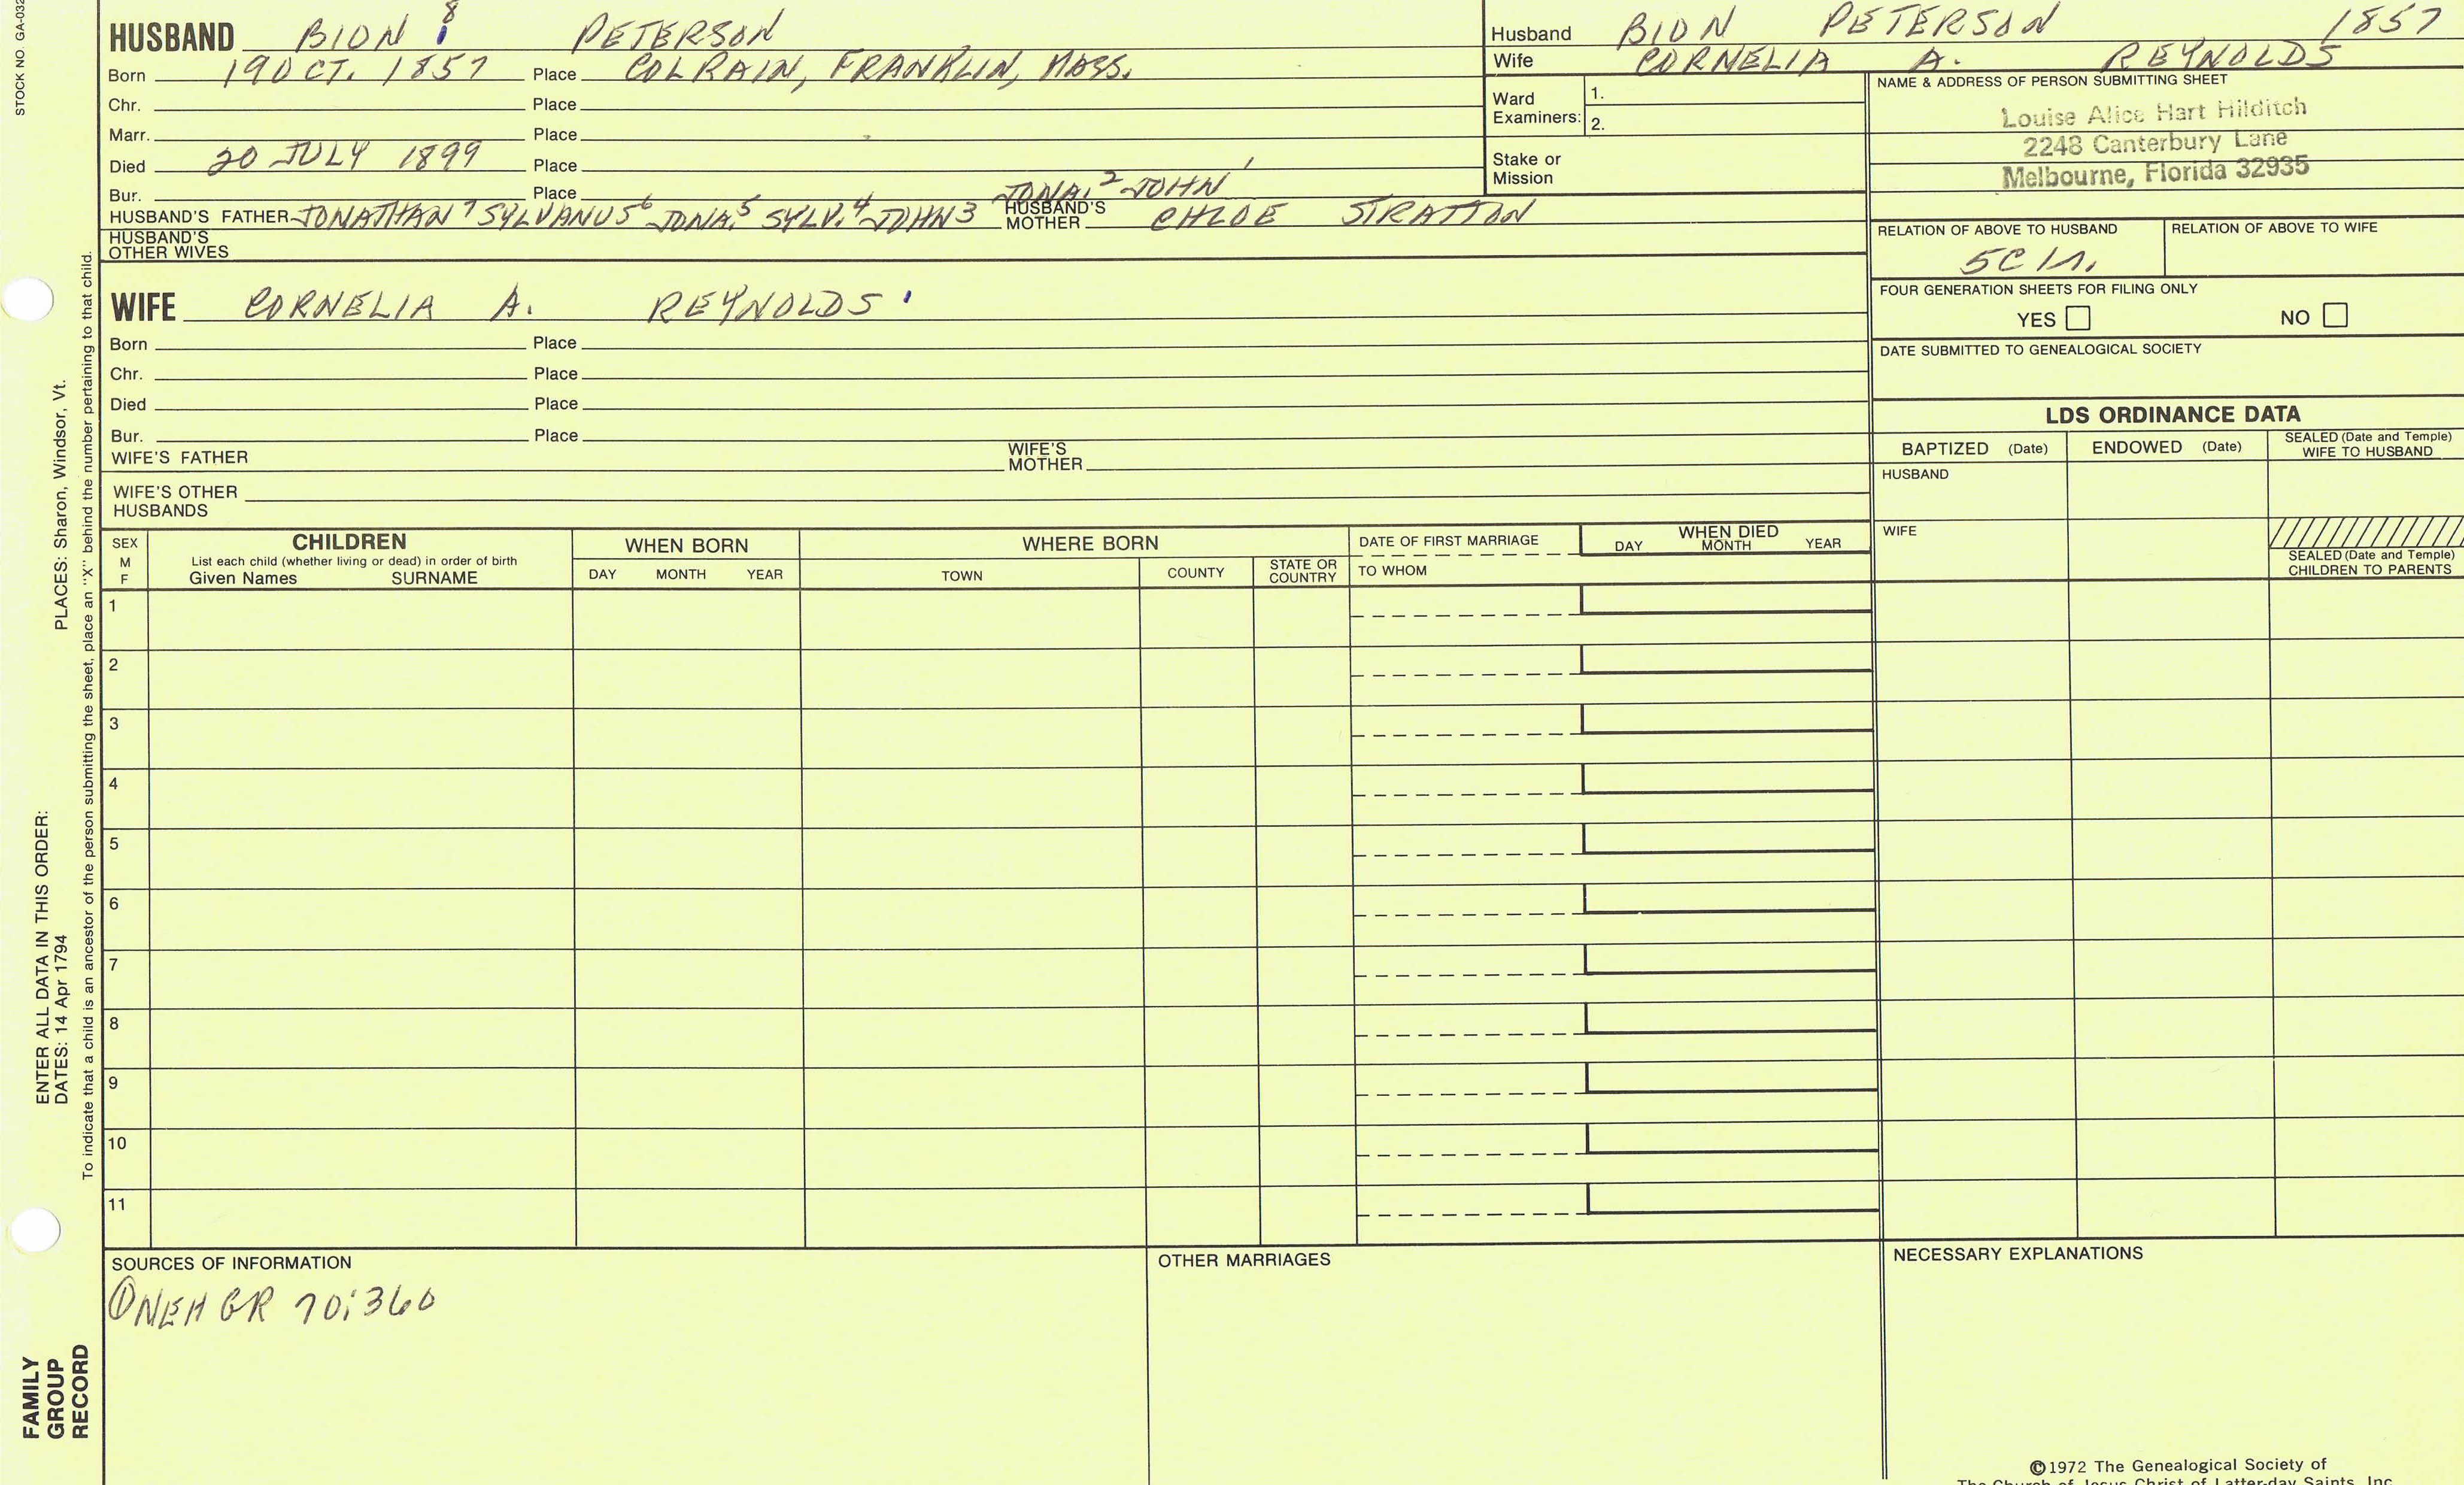 STOCK NO. GA-032
HUSBAND BION 8 PETERSON
Born 19 OCT. 1857 Place COLRAIN, FRANKLIN, MASS.
Chr. Place
Marr. Place
Died 20 JULY 1899 Place
Bur. Place JONA.2 JOHN 1
HUSBAND'S FATHER JONATHAN7 SYLVANUS6 JONA.5 SYLV.4 JOHN3 HUSBAND'S MOTHER CHLOE STRATTON
HUSBAND'S OTHER WIVES
Husband BION PETERSON 1857
Wife CORNELIA A. REYNOLDS
Ward Examiners: 1.
2.
Stake or Mission
NAME & ADDRESS OF PERSON SUBMITTING SHEET
Louise Alice Hart Hilditch
2248 Canterbury Lane
Melbourne, Florida 32935
RELATION OF ABOVE TO HUSBAND RELATION OF ABOVE TO WIFE
5C 1r.
FOUR GENERATION SHEETS FOR FILING ONLY
YES NO
DATE SUBMITTED TO GENEALOGICAL SOCIETY
WIFE CORNELIA A. REYNOLDS '
Born Place
Chr. Place
Died Place
Bur. Place
WIFE'S FATHER WIFE'S MOTHER
WIFE'S OTHER HUSBANDS
LDS ORDINANCE DATA
BAPTIZED (Date) ENDOWED (Date) SEALED (Date and Temple) WIFE TO HUSBAND
HUSBAND
WIFE
SEALED (Date and Temple) CHILDREN TO PARENTS
SEX M F
CHILDREN
List each child (whether living or dead) in order of birth
Given Names SURNAME
WHEN BORN
DAY MONTH YEAR
WHERE BORN
TOWN COUNTY STATE OR COUNTRY
DATE OF FIRST MARRIAGE
TO WHOM
WHEN DIED
DAY MONTH YEAR
1
2
3
4
5
6
7
8
9
10
11
SOURCES OF INFORMATION
① NEH GR 70:360
OTHER MARRIAGES
NECESSARY EXPLANATIONS
©1972 The Genealogical Society of
The Church of Jesus Christ of Latter-day Saints, Inc.
ENTER ALL DATA IN THIS ORDER:
DATES: 14 Apr 1794 PLACES: Sharon, Windsor, Vt.
To indicate that a child is an ancestor of the person submitting the sheet, place an "X" behind the number pertaining to that child.
FAMILY
GROUP
RECORD